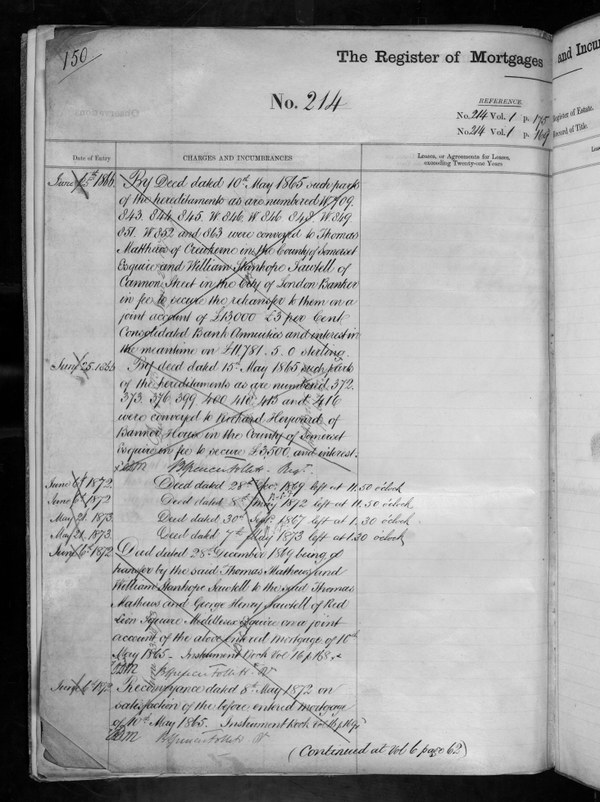 150
The Register of Mortgages
and Incum
No. 214
REFERENCE.
No. 214 Vol. 1 p. 175
Register of Estate.
No. 214 Vol. 1 p. 169
Record of Title.
Date of Entry
CHARGES AND INCUMBRANCES
Leases, or Agreements for Leases,
exceeding Twenty-one Years
June 25th 1866 By Deed dated 10th May 1865 such parts
of the hereditaments as are numbered W709.
843. 844. 845. W 846 W 846 848 W 849
851. W 852 and 863 were conveyed to Thomas
Matthews of Crewkerne in the County of Somerset
Esquire and William Stanhope Sawtell of
Cannon Street in the City of London Banker
in fee to secure the retransfer to them on a
joint account of £13000 £3 per Cent
Consolidated Bank Annuities and interest in
the meantime on £11,781. 5. 0 sterling.
June 25. By deed dated 15th May 1865 such parts
of the hereditaments as are numbered 372.
373. 376. 399. 400. 410. 415 and 416
were conveyed to Richard Hayward of
House in the County of Somerset
Esquire in fee to secure £3,500 and interest.
BSpencer Follett. Regr.
June 6th 1872 Deed dated 28th Dec. 1869 left at 11.50 o'clock
June 6th 1872 Deed dated 8th May 1872 left at 11.50 o'clock
May 21. 1873. Deed dated 30th Sept. 1867 left at 1.30 o'clock
May 21. 1873. Deed dated 7th May 1873 left at 1.30 o'clock
June 6th 1872 Deed dated 28th December 1869 being a
transfer by the said Thomas Mathews and
William Stanhope Sawtell to the said Thomas
Mathews and George Henry Sawtell of Red
Lion Square Middlesex Esquire on a joint
account of the above entered mortgage of 10th
May 1865 - Instrument Book Vol 16 p 168
BSpencer Follett R
June 6th 1872 Reconveyance dated 8th May 1872 on
satisfaction of the before entered mortgage
of 10th May 1865. Instrument Book Vol 16 p
BSpencer Follett R
(Continued at Vol 6 page 62)